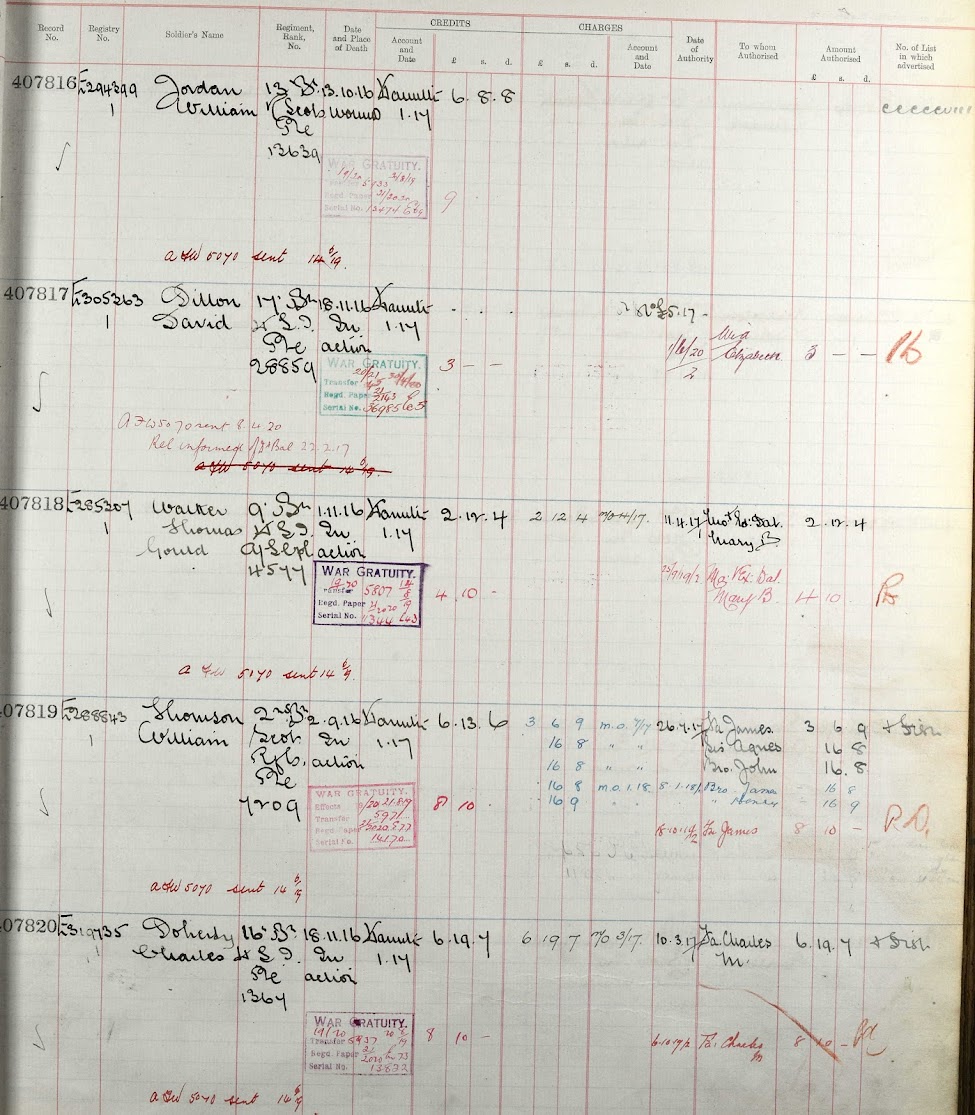 CREDITS CHARGES
Record No. Registry No. Soldier's Name Regiment, Rank, No. Date and Place of Death Account and Date £ s. d. £ s. d. Account and Date Date of Authority To whom Authorised Amount Authorised £ s. d. No. of List in which advertised
407816 294399 Jordan 13 Bn 13.10.16 Hamilt 6. 8. 8
1 William R Scots wound 1.17
Pte
13639
WAR GRATUITY.
19/20 5933 2/8/19
Regd. Paper 21/2020
Serial No. 13474
9 . .
a FW 5070 sent 14 6/19.
407817 305263 Dillon 17 Bn 18.11.16 Hamilt . . . 5.17
1 David H.L.I. In 1.17
Pte action
28859
Elizabeth 3 — —
WAR GRATUITY. 3 — —
Transfer
Regd. Paper
Serial No.
A FW 5070 sent 8.4.20
Rel informed of Bal 22.2.17
a FW 5070 sent 14 6/19.
407818 285307 Walker 9 Bn 1.11.16 Hamilt 2. 12. 4 2 12 4 11.4.17 2. 12. 4
1 Thomas H.L.I. In 1.17 Mary B
Gould action
4577
WAR GRATUITY.
19/20 5807 14/8/19
Regd. Paper 21/2020
Serial No. 1344
4 10 -
Mary B 4 10
a FW 5070 sent 14 6/9.
407819 288843 Thomson 2nd Bn 2.9.16 Hamilt 6. 13. 6 3 6 9 m.o. 7/17 26.7.17 Fa James 3 6 9 + Irish
1 William Scot. In 1.17 16 8 " " Sis Agnes 16 8
Rfls. action 16 8 " " Bro. John 16. 8
Pte 16 8 m.o. 1.18 5.1.18 Bro. James 16 8
7209 16 9 " Henry 16 9
WAR GRATUITY.
Effects
Transfer 5971
Regd. Paper
Serial No. 14170
8 10 -
Fa James 8 10 —
a FW 5070 sent 14 6/9
407820 319735 Doherty 16 Bn 18.11.16 Hamilt 6. 19. 7 6 19 7 m/o 3/17. 10.3.17 Fa. Charles 6. 19. 7 + Irish
1 Charles H.L.I. In 1.17 M.
Pte action
1367
WAR GRATUITY.
19/20
Transfer 5937
Regd. Paper 21/2020
Serial No. 13832
8 10 —
Fa. Charles 8 10 -
M
a FW 5070 sent 14 6/9